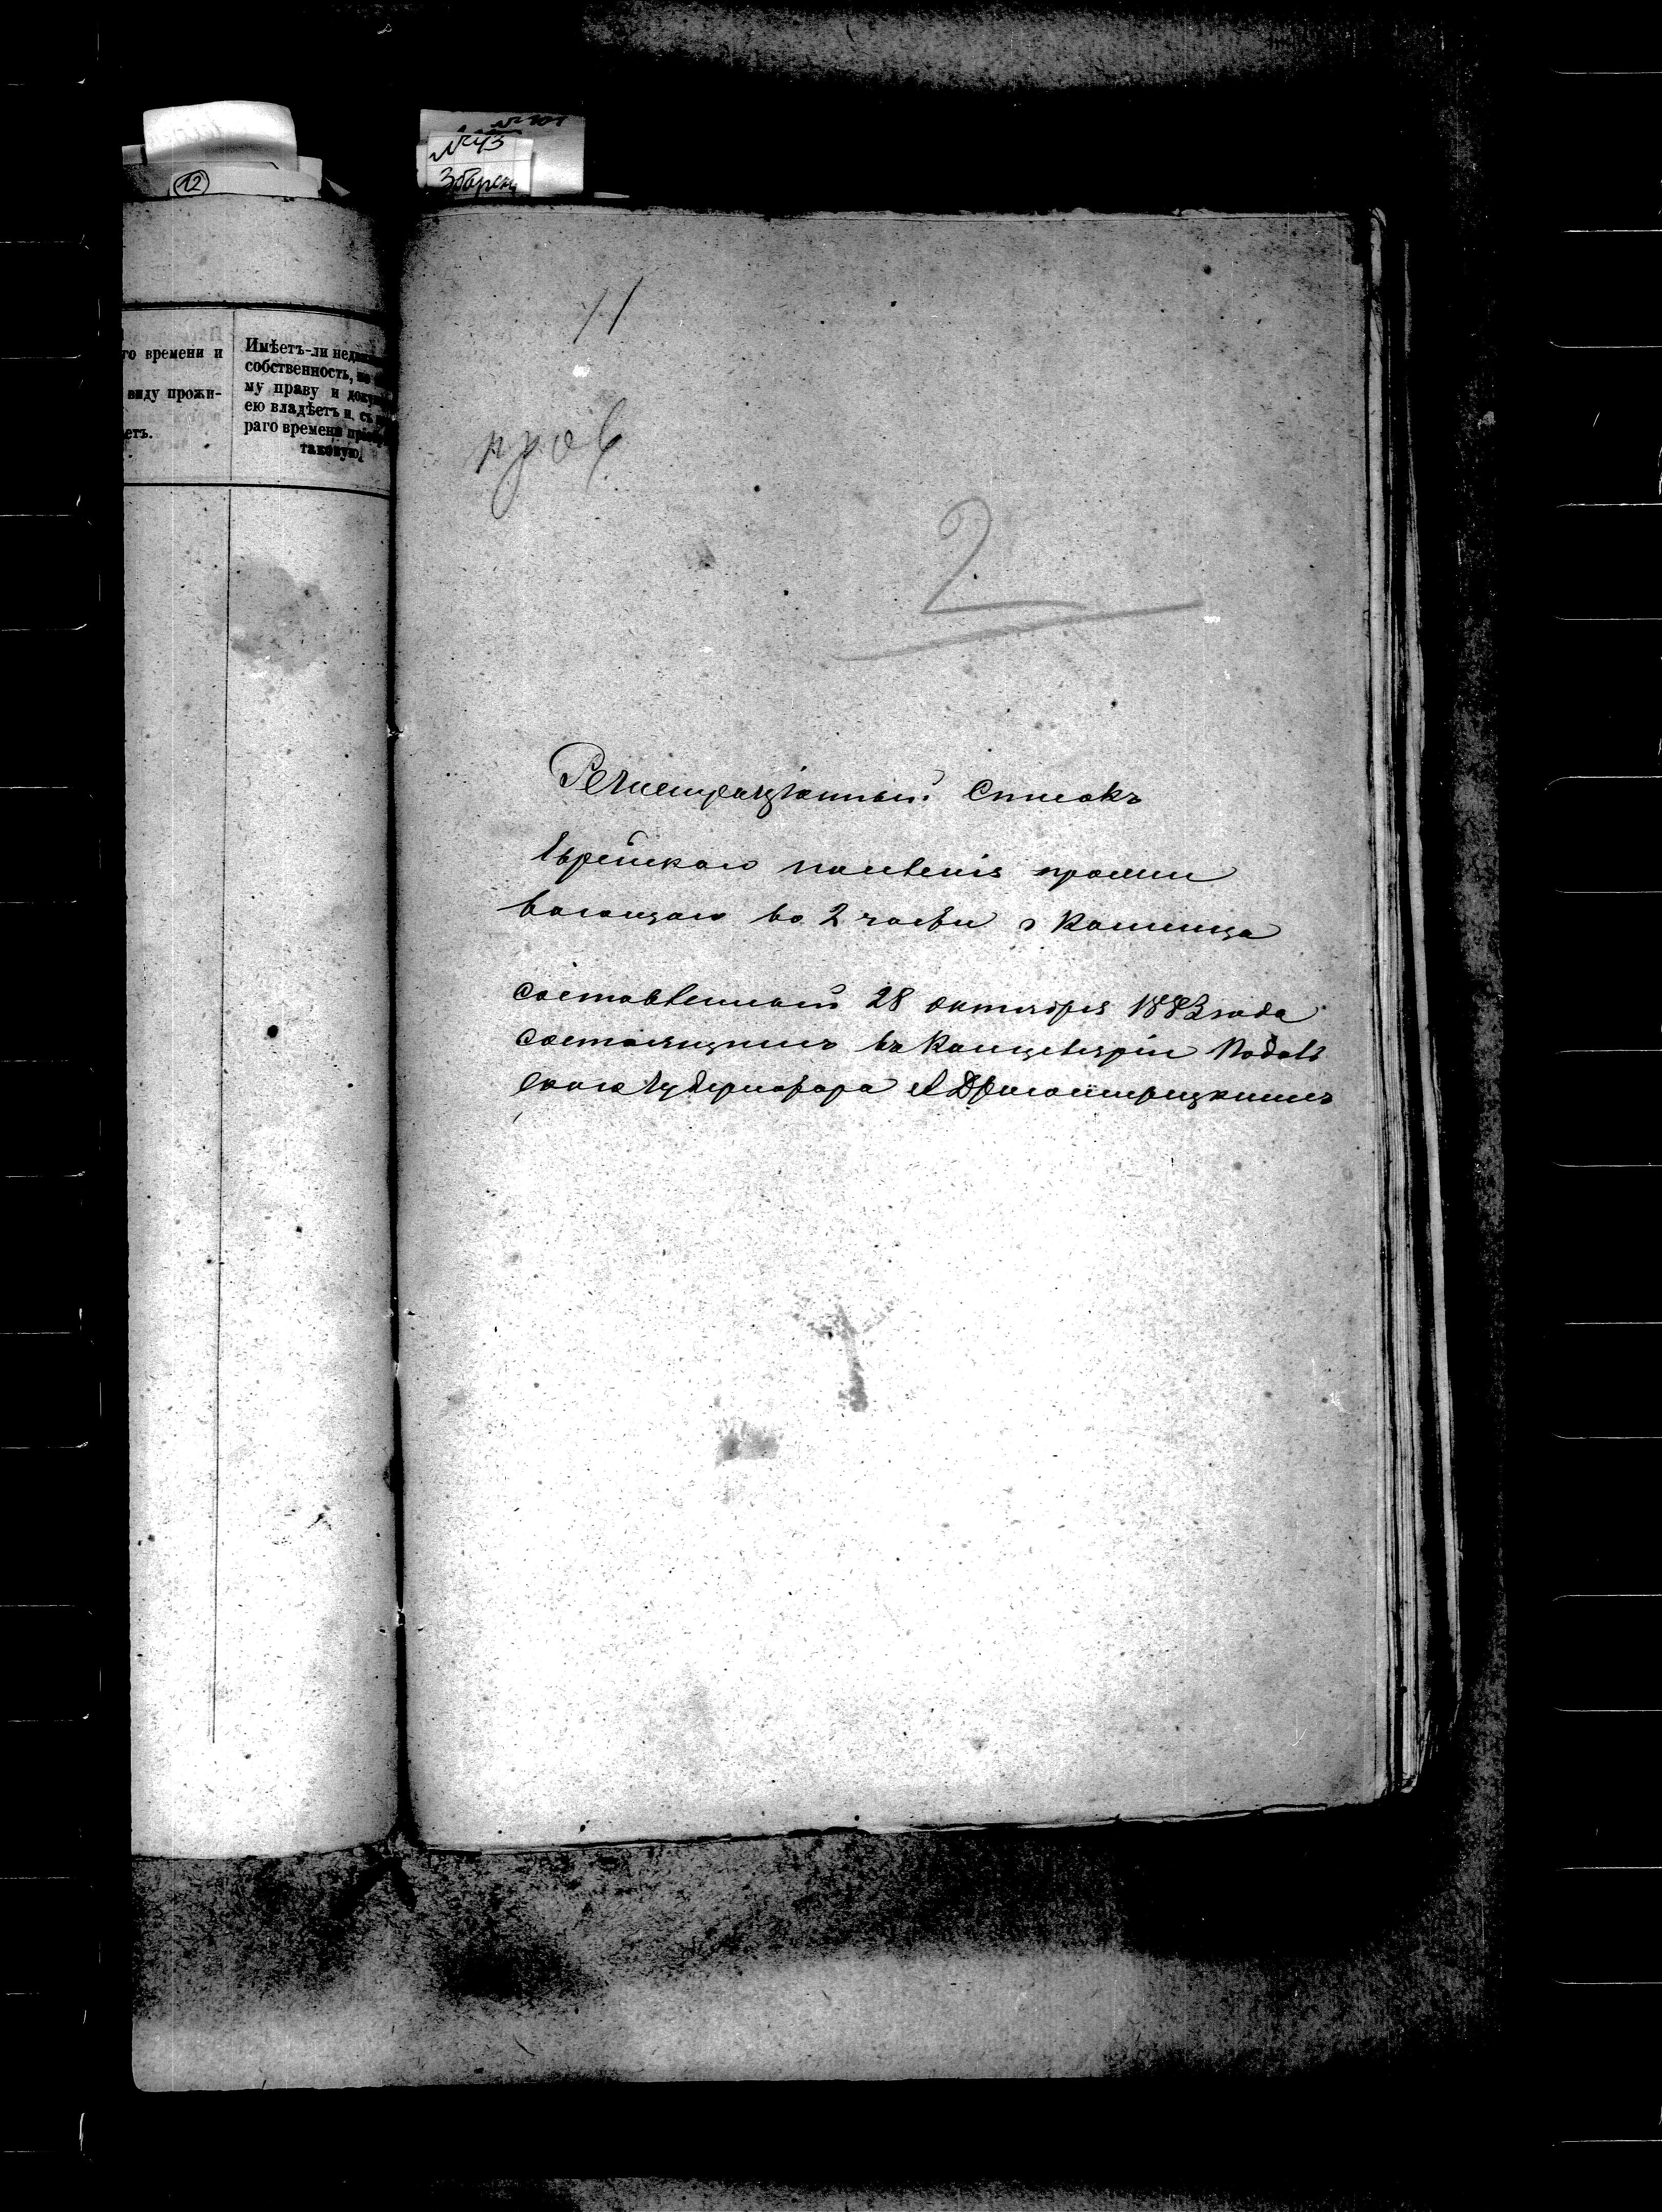 № 43
Збарск
12
го времени и
виду прожи-
етъ.
Имѣетъ-ли
собственность,
му праву и
ею владѣетъ и, съ
раго времени
таковую.
пров
2
Регистраціонный Списокъ
Еврейскаго населенія прожи
вающаго во 2 части г Каменца
составленный 28 октября 1883 года
состоящимъ въ Канцеляріи Подоль
скаго Губернатора